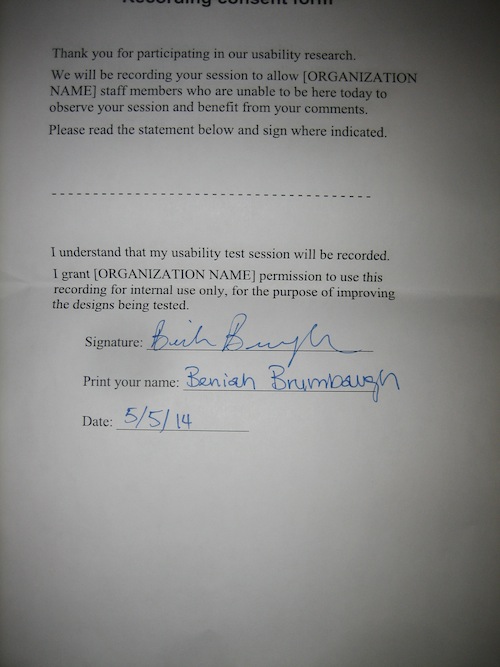 Recording consent form
Thank you for participating in our usability research.
We will be recording your session to allow [ORGANIZATION
NAME] staff members who are unable to be here today to
observe your session and benefit from your comments.
Please read the statement below and sign where indicated.
I understand that my usability test session will be recorded.
I grant [ORGANIZATION NAME] permission to use this
recording for internal use only, for the purpose of improving
the designs being tested.
Signature:
Print your name: Beniah Brumbaugh
Date: 5/5/14